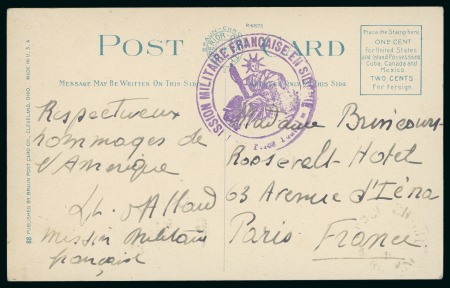 POST CARD
PLACE THE STAMP HERE
ONE CENT
FOR UNITED STATES
AND ISLAND POSSESSIONS
CUBA, CANADA AND
MEXICO
TWO CENTS
FOR FOREIGN
MESSAGE MAY BE WRITTEN ON THIS SIDE
SIDE
MISSION MILITAIRE FRANÇAISE EN SIBÉRIE
Respectueux
hommages de
l'Amérique
Lt. d'Allard
Mission Militaire
française
Madame
Roosevelt-Hotel
63 Avenue d'Iéna
Paris. France.
88 PUBLISHED BY BRAUN POST CARD CO., CLEVELAND, OHIO. MADE IN U.S.A.